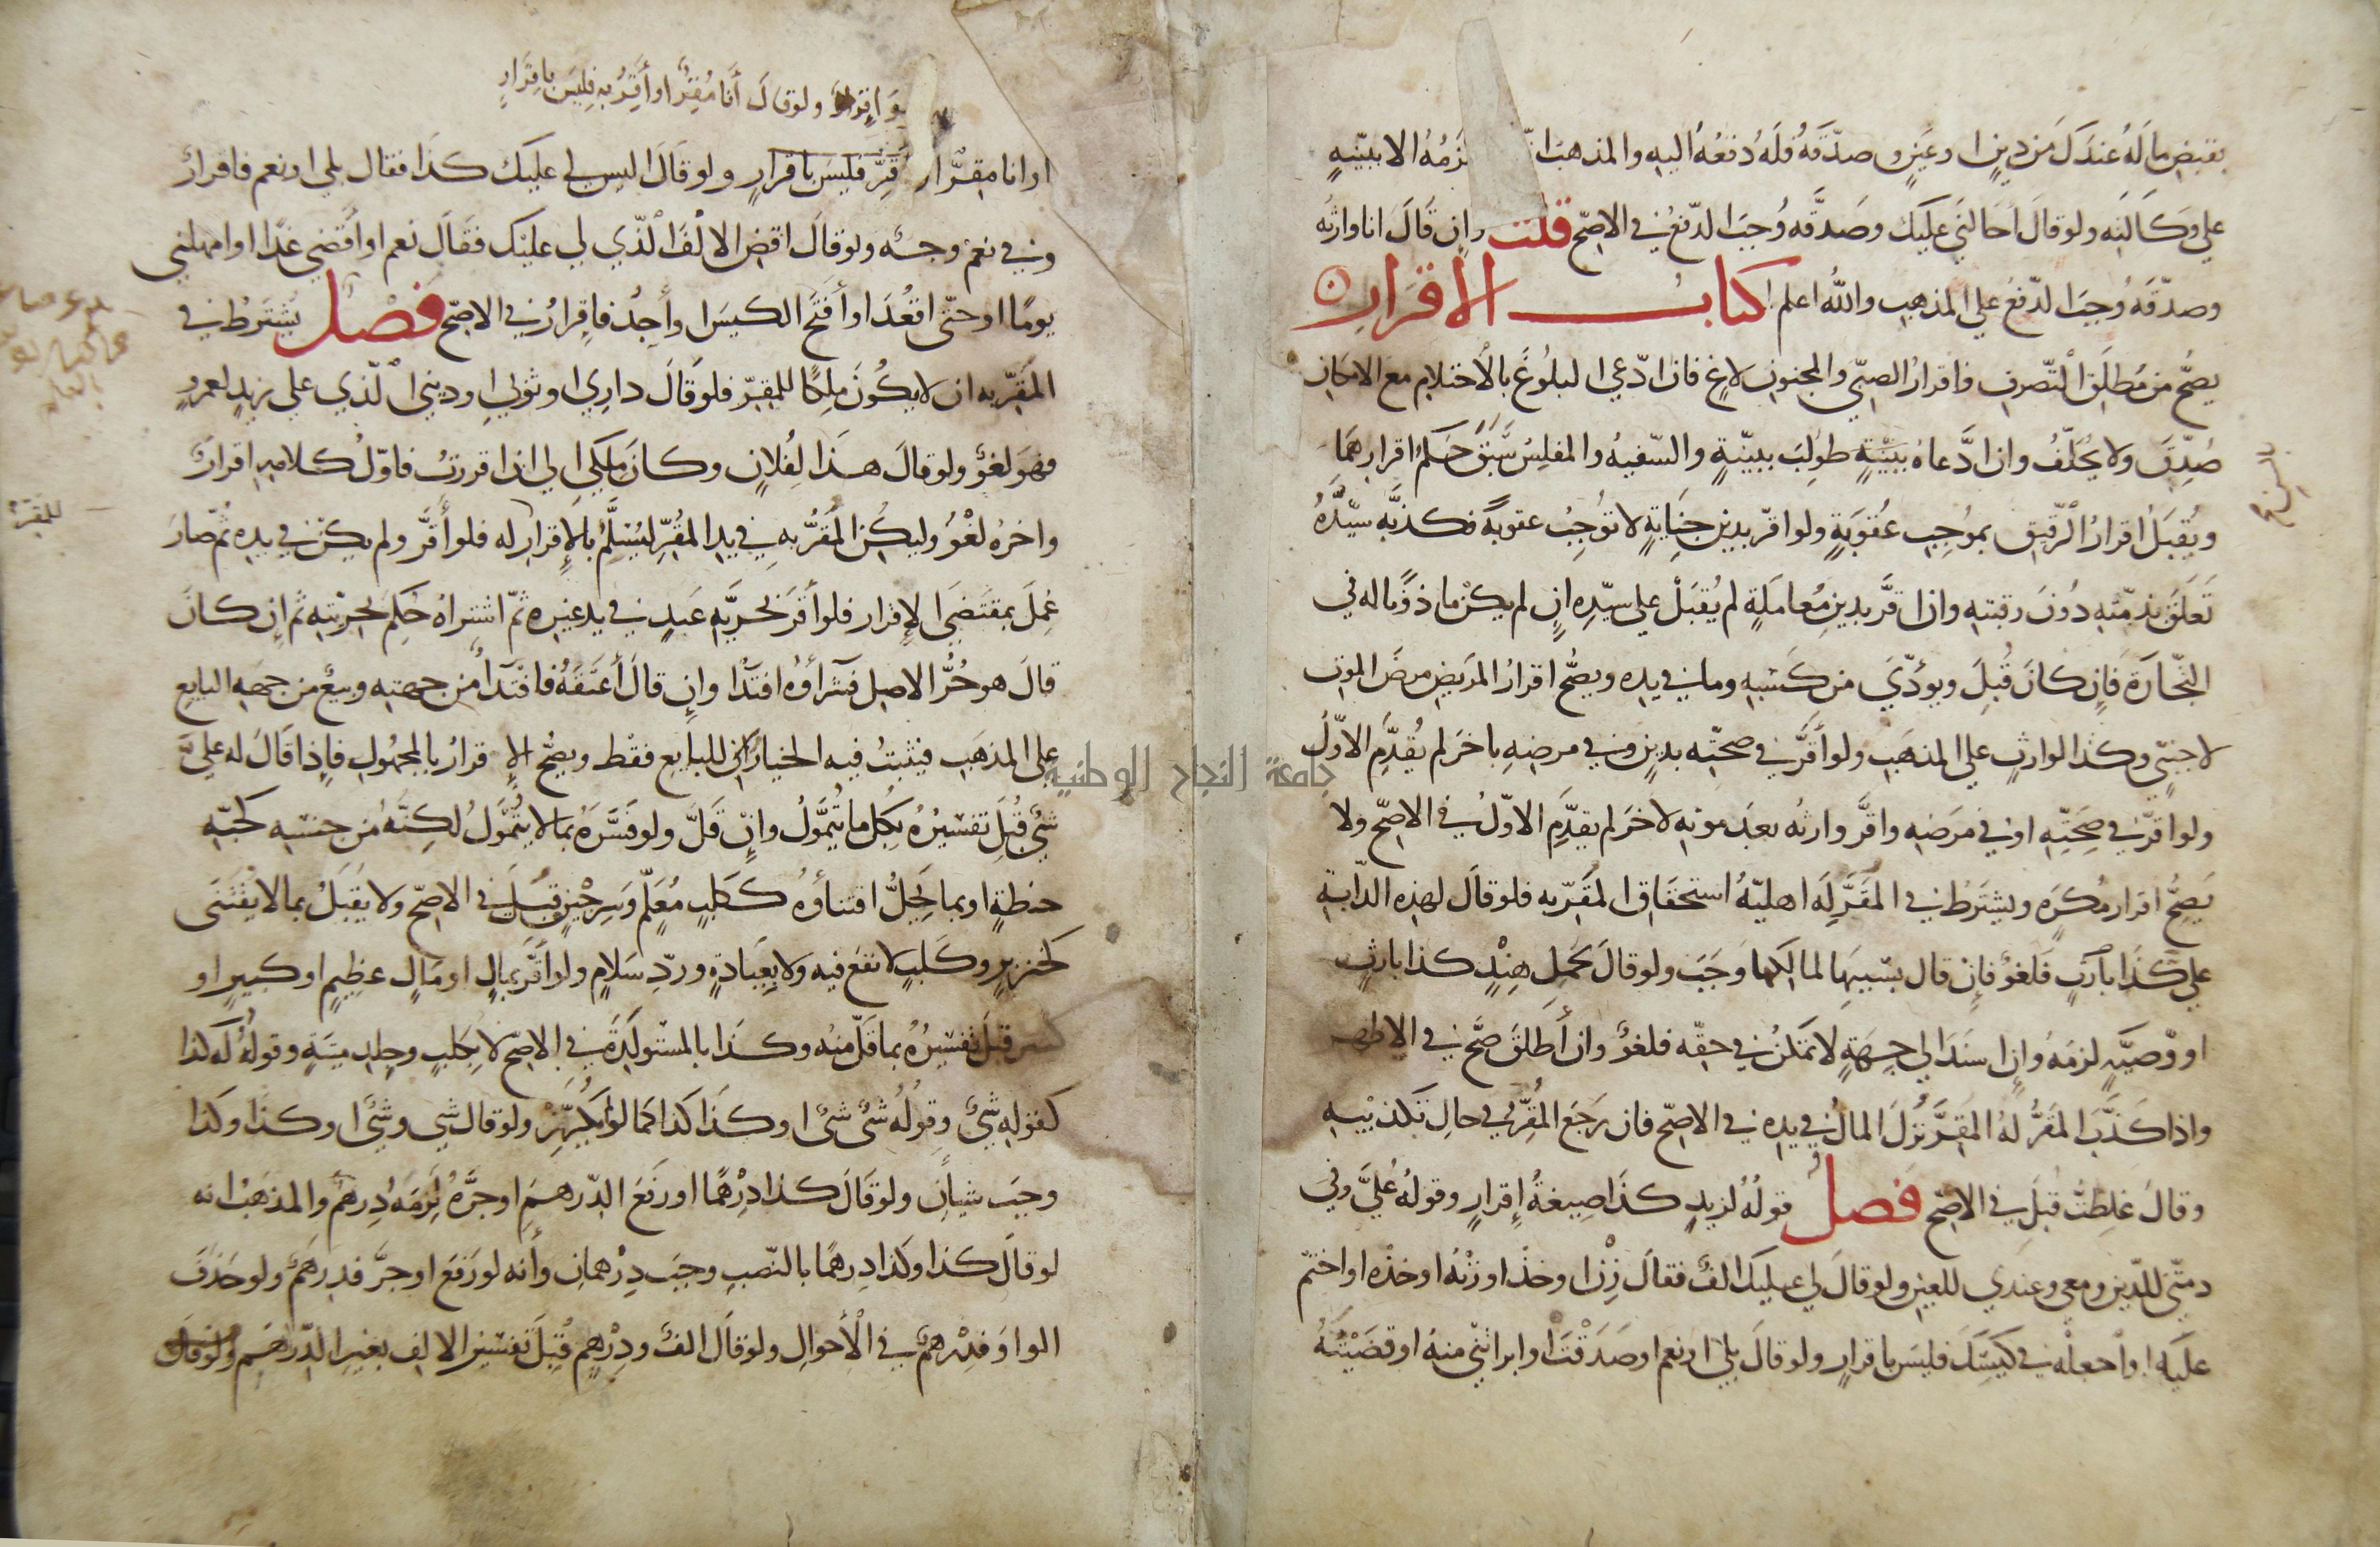 بقبض ماله عندك من دين او عين وصدقه فله دفعه اليه والمذهب انه لا يلزمه الا ببينة
علي وكالته ولو قال احالني عليك وصدقه وجب الدفع في الاصح قلت وان قال انا وارثه
وصدقه وجب الدفع علي المذهب والله اعلم كتاب الاقرار
يصح من مطلق التصرف فاقرار الصبي والمجنون لاغ فان ادعي البلوغ بالاحتلام مع الامكان
صدق ولا يحلف وان ادعاه ببينة طولب ببينة والسفيه والمفلس سبق حكم اقرارهما
ويقبل اقرار الرقيق بموجب عقوبة ولو اقر بدين جناية لا توجب عقوبة فكذبه سيده
تعلق بذمته دون رقبته وان اقر بدين معاملة لم يقبل علي سيده ان لم يكن ماذونا له في
التجارة فان كان قبل ويؤدي من كسبه وما في يده ويصح اقرار المريض مرض الموت
لاجنبي وكذا لوارث علي المذهب ولو أقر في صحته بدين وفي مرضه باخر لم يقدم الاول
ولو اقر في صحته او في مرضه واقر وارثه بعد موته لاخر لم يقدم الاول في الاصح ولا
يصح اقرار مكره ويشترط في المقر له اهلية استحقاق المقر به فلو قال لهذه الدابة
علي كذا بأرب فلغو فان قال بسببها لمالكها وجب ولو قال لحمل هند كذا بارث
او وصية لزمه وإن اسند الي جهة لا تمكن في حقه فلغو وان أطلق صح في الاظهر
واذا كذب المقر له المقر ترك المال في يده في الاصح فان رجع المقر في حال تكذيبه
وقال غلطت قبل في الاصح فصل قوله لزيد كذا صيغة إقرار وقوله علي وفي
ذمتي للدين ومعي وعندي للعين ولو قال لي عليك الف فقال زن او خذ او زنه او خذه او اختم
عليه او اجعله في كيسك فليس باقرار ولو قال بلي او نعم او صدقت او ابراتني منه او قضيته
او انا مقر او اقر فليس باقرار ولو قال اليس لي عليك كذا فقال بلي او نعم فاقرار
ولو قال أنا مقر او أقر به فليس باقرار
وفي نعم وجه ولو قال اقض الالف الذي لي عليك فقال نعم او أقضي غدا او امهلني
يوما او حتي اقعد او أفتح الكيس او أجد فإقرار في الاصح فصل يشترط في
المقر به ان لا يكون ملكا للمقر فلو قال داري او ثوبي او ديني الذي علي زيد لعمرو
فهو لغو ولو قال هذا لفلان وكان ملكي الي ان اقررت فاول كلامه اقرار
واخره لغو وليكن المقر به في يد المقر ليسلم بالإقرار له فلو أقر ولم يكن في يده ثم صار
للمقر
عمل بمقتضي الإقرار فلو أقر بحرية عبد في يد غيره ثم اشتراه حكم بحريته ثم ان كان
قال هو حر الاصل فشراؤه افتدا وان قال أعتقه فافتدا من جهته وبيع من جهة البايع
علي المذهب فيثبت فيه الخياران للبايع فقط ويصح الإقرار بالمجهول فإذا قال له علي
شي قبل تفسيره بكل ما يتمول وإن قل ولو فسره بما لا يتمول لكنه من جنسه كحبة
حنطة او بما يحل اقتناؤه ككلب معلم وسرجين قبل في الاصح ولا يقبل بما لا يقتني
كخنزير وكلب لا نفع فيه ولا بعيادة ورد سلام ولو أقر بمال او مال عظيم او كبير او
كثير قبل تفسيره بما قل منه وكذا بالمستولدة في الاصح لا بكلب وجلد ميتة وقوله له كذا
كقوله شي وقوله شي شي او كذا كذا كما لو لم يكرر ولو قال شي وشي او كذا وكذا
وجب شيأن ولو قال كذا درهما او رفع الدرهم او جره لزمه درهم والمذهب انه
لو قال كذا وكذا درهما بالنصب وجب درهمان وأنه لو رفع او جر فدرهم ولو حذف
الواو فدرهم في الأحوال ولو قال الف ودرهم قبل تفسير الالف بغير الدرهم ولو قال
جامعة النجاح الوطنية